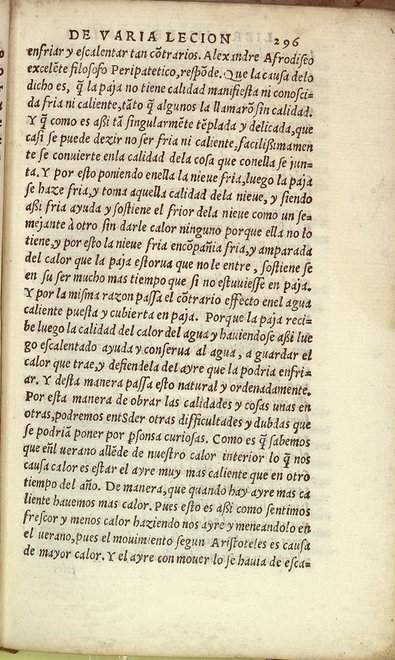 DE VARIA LECION 296
enfriar y escalentar tan cõtrarios. Alexandre Afrodiseo
excelẽte filosofo Peripatetico, respõde. Que la causa delo
dicho es, q̃ la paja no tiene calidad manifiesta ni conosci-
da fria ni caliente, tãto q̃ algunos la llamarõ sin calidad.
Y q̃ como es aßi tã singularmẽte tẽplada y delicada, que
casi se puede dezir no ser fria ni caliente, facilißimamen
te se conuierte enla calidad dela cosa que conella se jun-
ta. Y por esto poniendo enella la nieue fria, luego la paja
se haze fria, y toma aquella calidad dela nieue, y siendo
aßi fria ayuda y sostiene el frior dela nieue como un se-
mejante à otro sin darle calor ninguno porque ella no lo
tiene, y por esto la nieue fria encõpañia fria, y amparada
del calor que la paja estorua que no le entre, sostiene se
en su ser mucho mas tiempo que si no estuuiesse en paja.
Y por la misma razon passa el cõtrario effecto enel agua
caliente puesta y cubierta en paja. Porque la paja reci-
be luego la calidad del calor del agua y hauiendose aßi lue
go escalentado ayuda y conserua al agua, a guardar el
calor que trae, y defiendela del ayre que la podria enfri-
ar. Y desta manera passa esto natural y ordenadamente.
Por esta manera de obrar las calidades y cosas unas en
otras, podremos entSder otras difficultades y dubdas que
se podriã poner por ꝑsonas curiosas. Como es q̃ sabemos
que eñl uerano allẽde de nuestro calor interior lo q̃ nos
causa calor es estar el ayre muy mas caliente que en otro
tiempo del año. De manera, que quando hay ayre mas ca
liente hauemos mas calor. Pues esto es aßi como sentimos
frescor y menos calor haziendo nos ayre y meneandolo en
el uerano, pues el mouimiento segun Aristoteles es causa
de mayor calor. Y el ayre con mouer lo se hauia de esca-